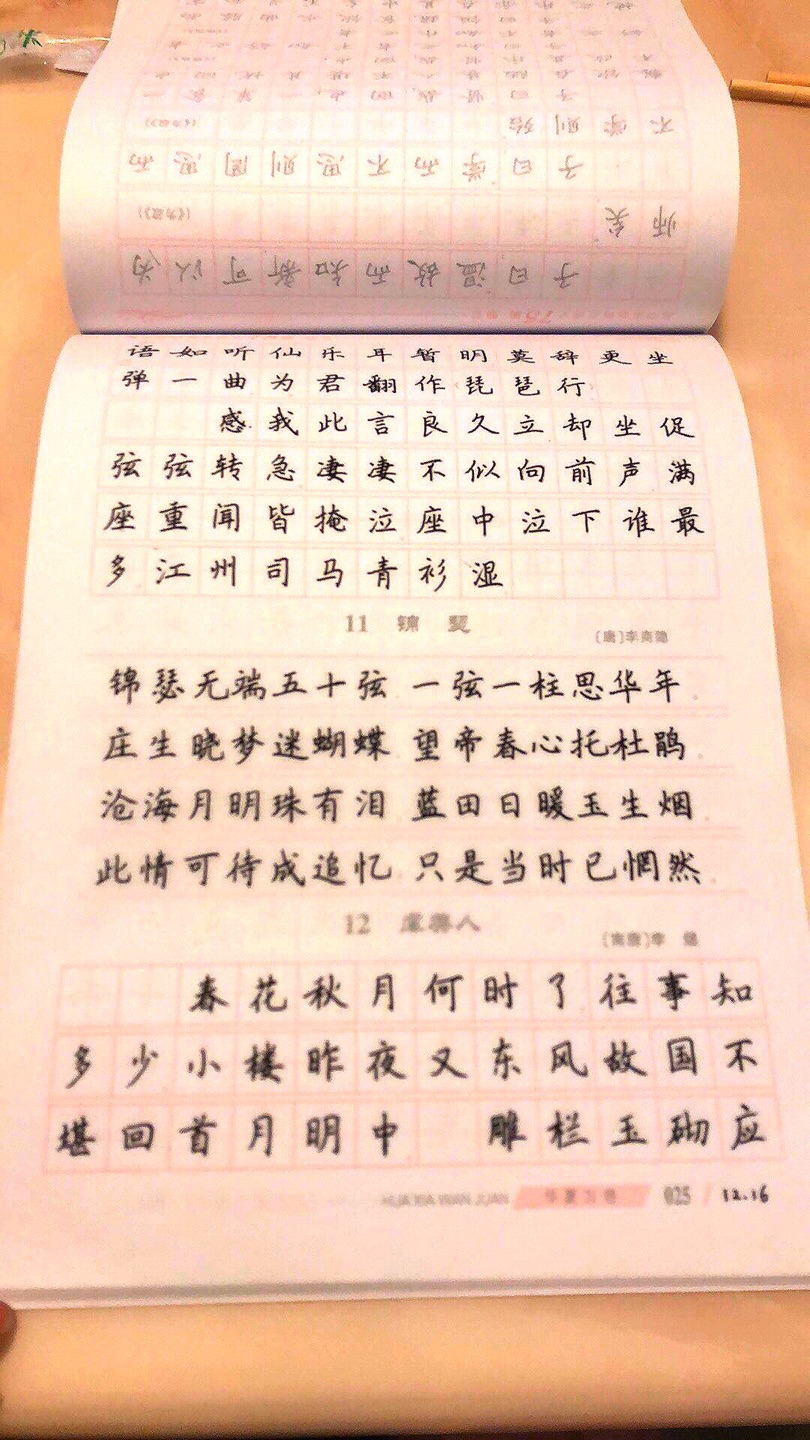 不学则殆
(《为政》)
子曰学而不思则罔思而
师矣
(《为政》)
子曰温故而知新可以为
语如听仙乐耳暂明莫辞更坐
弹一曲为君翻作琵琶行
感我此言良久立却坐促
弦弦转急凄凄不似向前声满
座重闻皆掩泣座中泣下谁最
多江州司马青衫湿
11 锦瑟
〔唐〕李商隐
锦瑟无端五十弦 一弦一柱思华年
庄生晓梦迷蝴蝶 望帝春心托杜鹃
沧海月明珠有泪 蓝田日暖玉生烟
此情可待成追忆 只是当时已惘然
12 虞美人
〔南唐〕李煜
春花秋月何时了往事知
多少小楼昨夜又东风故国不
堪回首月明中 雕栏玉砌应
HUA XIA WAN JUAN 华夏万卷 025 12.16